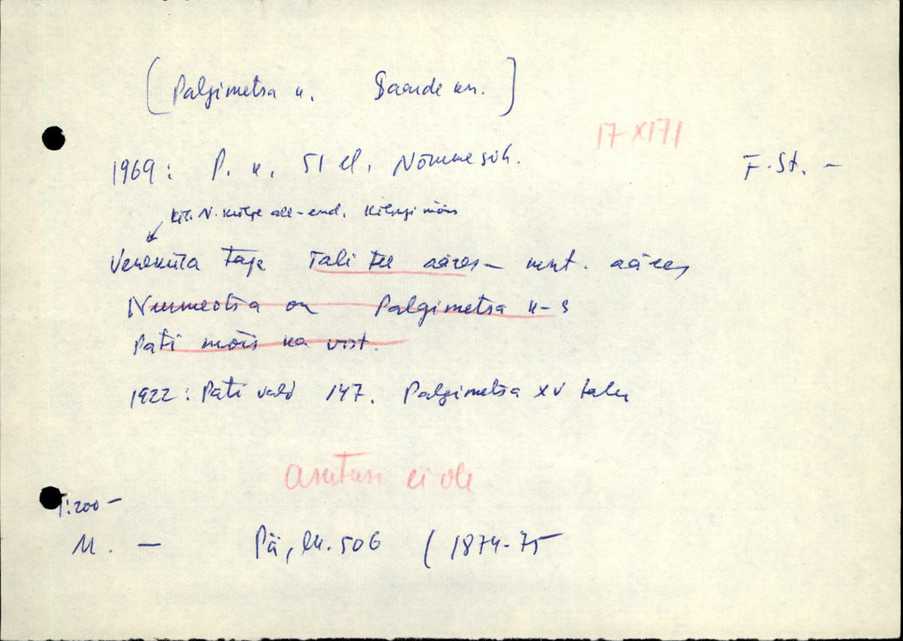 [Palgimetsa k. Saarde khn.]
17 XI 71
1969: P. k. 51 el. Nõmme süh. F. St. –
kit. N. külge all-end. Kilingi mõis
Veneküla taga Tali tee ääres – mnt. ääres
Nurmeotsa on Palgimetsa k-s
Pati mõis ka vist.
1922: Pati vald 147. Palgimetsa XV talu
asutusi ei ole
T:200 –
M. – Pä, lk. 506 (1874-75